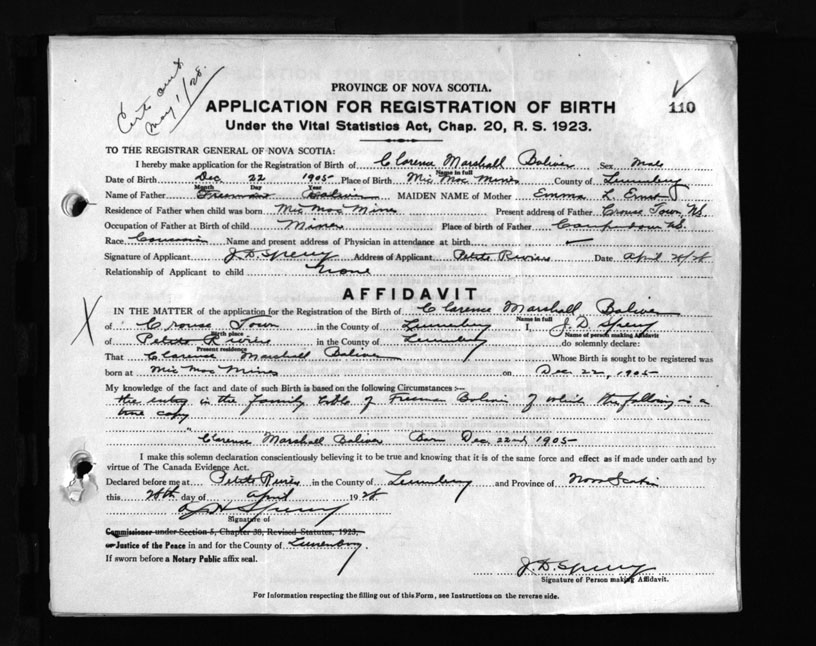 Cert out.
May 1/28.
PROVINCE OF NOVA SCOTIA.
APPLICATION FOR REGISTRATION OF BIRTH
110
Under the Vital Statistics Act, Chap. 20, R. S. 1923.
TO THE REGISTRAR GENERAL OF NOVA SCOTIA:
I hereby make application for the Registration of Birth of Clarence Marshall Boliver Sex Male
Name in full
Date of Birth Dec 22 1905 Place of Birth Mic Mac Mines County of Lunenburg
Month Day Year
Name of Father Freeman Boliver MAIDEN NAME of Mother Emma L. Ernst
Residence of Father when child was born Mic Mac Mines Present address of Father Crouse Town, NS.
Occupation of Father at Birth of child Miner Place of birth of Father NS.
Race Name and present address of Physician in attendance at birth
Signature of Applicant J. D. Sperry Address of Applicant Petite Riviere Date April
Relationship of Applicant to child None
AFFIDAVIT
IN THE MATTER of the application for the Registration of the Birth of Clarence Marshall Boliver
Name in full
of Crouse Town in the County of Lunenburg I, J D Sperry
Birth place Name of person making Affidavit
of Petite Riviere in the County of Lunenburg do solemnly declare:
Present residence
That Clarence Marshall Boliver Whose Birth is sought to be registered was
born at Mic Mac Mines on Dec 22, 1905
My knowledge of the fact and date of such Birth is based on the following Circumstances :—
the entry in the family bible of Freeman Boliver of which the following is a
true copy
"Clarence Marshall Boliver Born Dec 22nd 1905
I make this solemn declaration conscientiously believing it to be true and knowing that it is of the same force and effect as if made under oath and by
virtue of The Canada Evidence Act.
Declared before me at Petite Riviere in the County of Lunenburg and Province of Nova Scotia
this day of April 1928
Sperry
Signature of
Commissioner under Section 5, Chapter 38, Revised Statutes, 1923,
or Justice of the Peace in and for the County of Lunenburg.
If sworn before a Notary Public affix seal.
J. D. Sperry
Signature of Person making Affidavit.
For Information respecting the filling out of this Form, see Instructions on the reverse side.